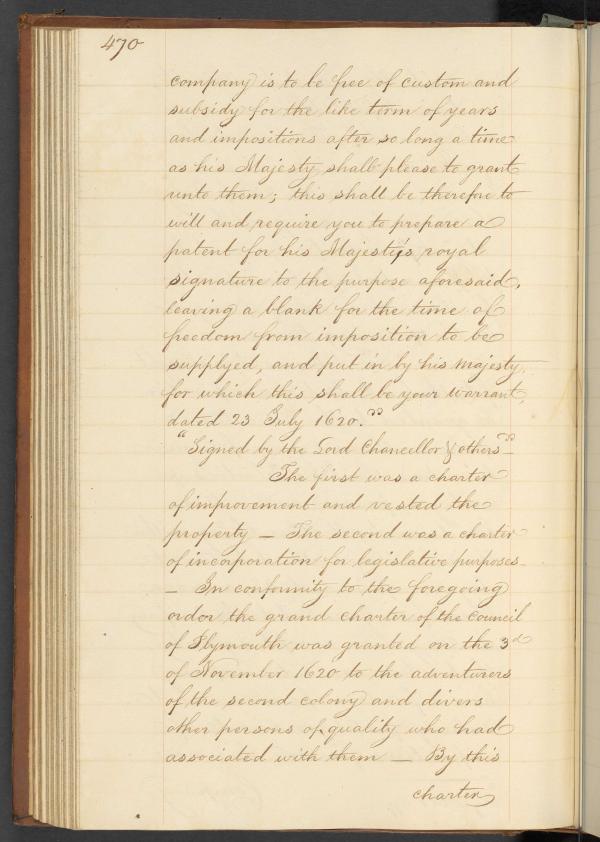 470
company is to be free of custom and
subsidy for the like term of years
and impositions after so long a time
as his Majesty shall please to grant
unto them; this shall be therefore to
will and require you to prepare a
patent for his Majesty's royal
signature to the purpose aforesaid,
leaving a blank for the time of
freedom from imposition to be
supplyed, and put in by his majesty,
for which this shall be your warrant,
dated 23 July 1620."
"Signed by the Lord Chancellor & others"—
The first was a charter
of improvement and vested the
property — The second was a charter
of incorporation for legislative purposes—
— In conformity to the foregoing
order the grand charter of the council
of Plymouth was granted on the 3d
of November 1620 to the adventurers
of the second colony and divers
other persons of quality who had
associated with them — By this
charter